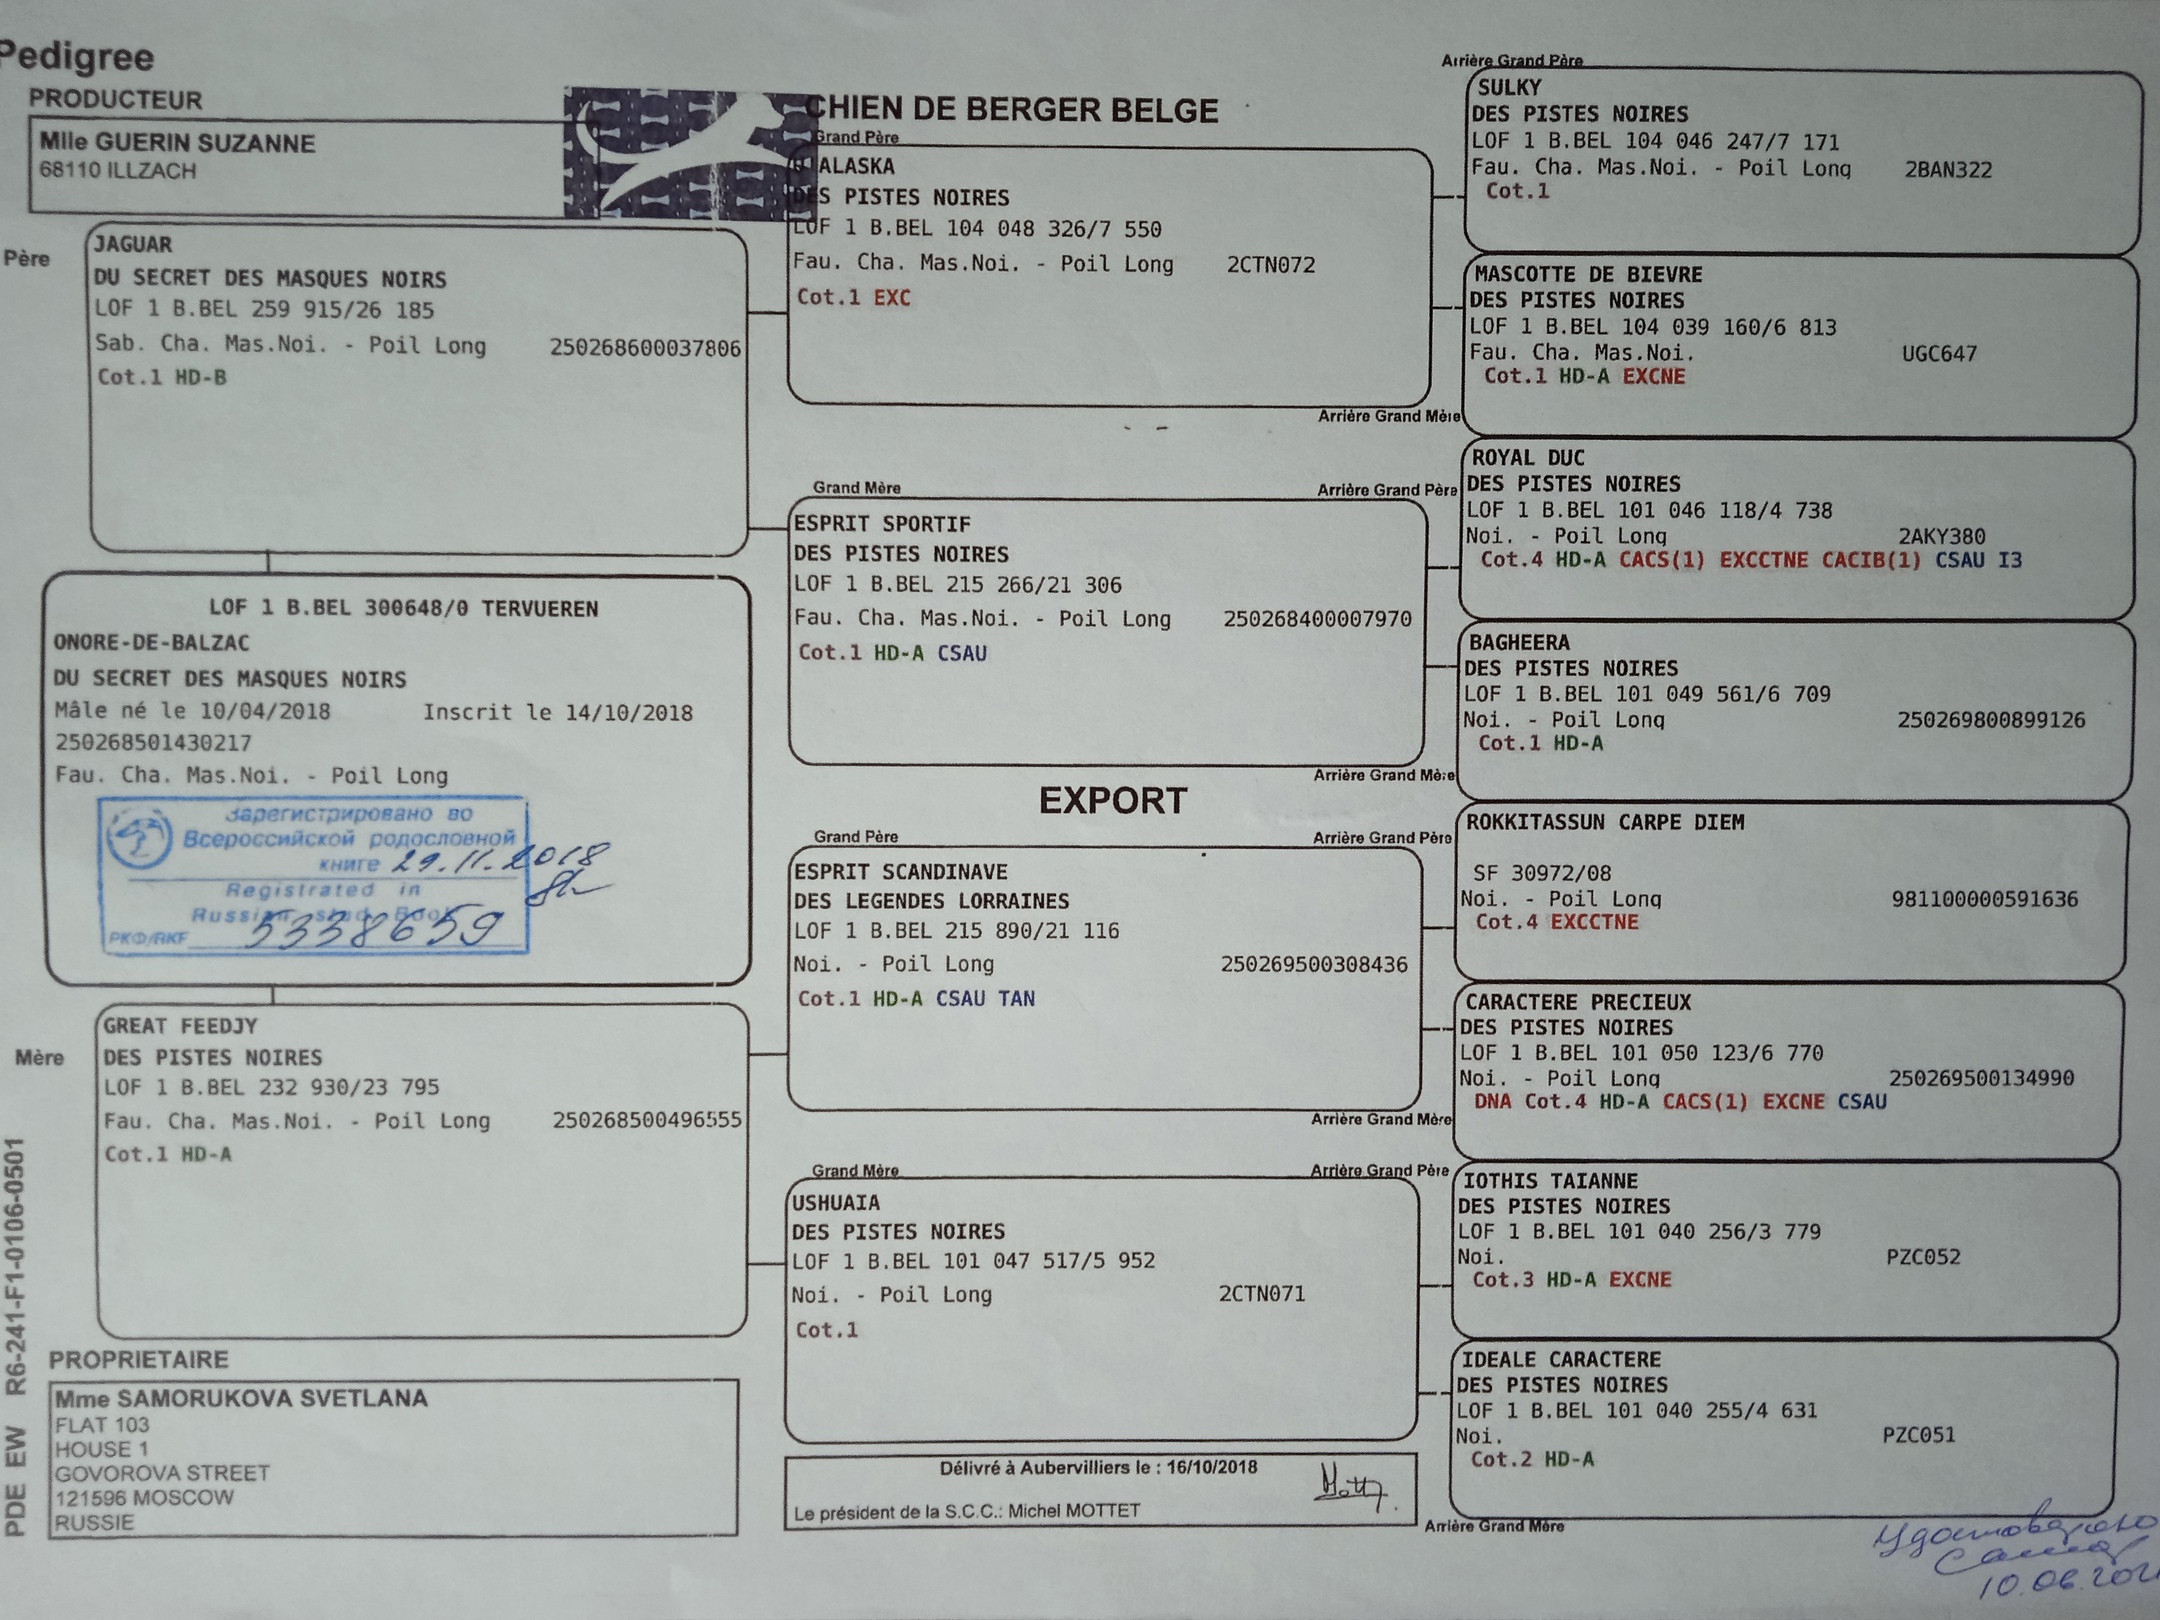 Pedigree
PRODUCTEUR
Mlle GUERIN SUZANNE
68110 ILLZACH
CHIEN DE BERGER BELGE
Père
JAGUAR
DU SECRET DES MASQUES NOIRS
LOF 1 B.BEL 259 915/26 185
Sab. Cha. Mas.Noi. - Poil Long 250268600037806
Cot.1 HD-B
LOF 1 B.BEL 300648/0 TERVUEREN
ONORE-DE-BALZAC
DU SECRET DES MASQUES NOIRS
Mâle né le 10/04/2018 Inscrit le 14/10/2018
250268501430217
Fau. Cha. Mas.Noi. - Poil Long
Зарегистрировано во
Всероссийской родословной
книге 29.11.2018
Registrated in
Russian stud Book
РКФ/RKF 5338659
Mère
GREAT FEEDJY
DES PISTES NOIRES
LOF 1 B.BEL 232 930/23 795
Fau. Cha. Mas.Noi. - Poil Long 250268500496555
Cot.1 HD-A
PROPRIETAIRE
Mme SAMORUKOVA SVETLANA
FLAT 103
HOUSE 1
GOVOROVA STREET
121596 MOSCOW
RUSSIE
PDE EW R6-241-F1-0106-0501
Grand Père
ALASKA
DES PISTES NOIRES
LOF 1 B.BEL 104 048 326/7 550
Fau. Cha. Mas.Noi. - Poil Long 2CTN072
Cot.1 EXC
Grand Mère
ESPRIT SPORTIF
DES PISTES NOIRES
LOF 1 B.BEL 215 266/21 306
Fau. Cha. Mas.Noi. - Poil Long 250268400007970
Cot.1 HD-A CSAU
EXPORT
Grand Père
ESPRIT SCANDINAVE
DES LEGENDES LORRAINES
LOF 1 B.BEL 215 890/21 116
Noi. - Poil Long 250269500308436
Cot.1 HD-A CSAU TAN
Grand Mère
USHUAIA
DES PISTES NOIRES
LOF 1 B.BEL 101 047 517/5 952
Noi. - Poil Long 2CTN071
Cot.1
Délivré à Aubervilliers le : 16/10/2018
Le président de la S.C.C.: Michel MOTTET
Arrière Grand Père
SULKY
DES PISTES NOIRES
LOF 1 B.BEL 104 046 247/7 171
Fau. Cha. Mas.Noi. - Poil Long 2BAN322
Cot.1
MASCOTTE DE BIEVRE
DES PISTES NOIRES
LOF 1 B.BEL 104 039 160/6 813
Fau. Cha. Mas.Noi. UGC647
Cot.1 HD-A EXCNE
Arrière Grand Mère
Arrière Grand Père
ROYAL DUC
DES PISTES NOIRES
LOF 1 B.BEL 101 046 118/4 738
Noi. - Poil Long 2AKY380
Cot.4 HD-A CACS(1) EXCCTNE CACIB(1) CSAU I3
BAGHEERA
DES PISTES NOIRES
LOF 1 B.BEL 101 049 561/6 709
Noi. - Poil Long 250269800899126
Cot.1 HD-A
Arrière Grand Mère
Arrière Grand Père
ROKKITASSUN CARPE DIEM
SF 30972/08
Noi. - Poil Long 981100000591636
Cot.4 EXCCTNE
CARACTERE PRECIEUX
DES PISTES NOIRES
LOF 1 B.BEL 101 050 123/6 770
Noi. - Poil Long 250269500134990
DNA Cot.4 HD-A CACS(1) EXCNE CSAU
Arrière Grand Mère
Arrière Grand Père
IOTHIS TAIANNE
DES PISTES NOIRES
LOF 1 B.BEL 101 040 256/3 779
Noi. PZC052
Cot.3 HD-A EXCNE
IDEALE CARACTERE
DES PISTES NOIRES
LOF 1 B.BEL 101 040 255/4 631
Noi. PZC051
Cot.2 HD-A
Arrière Grand Mère